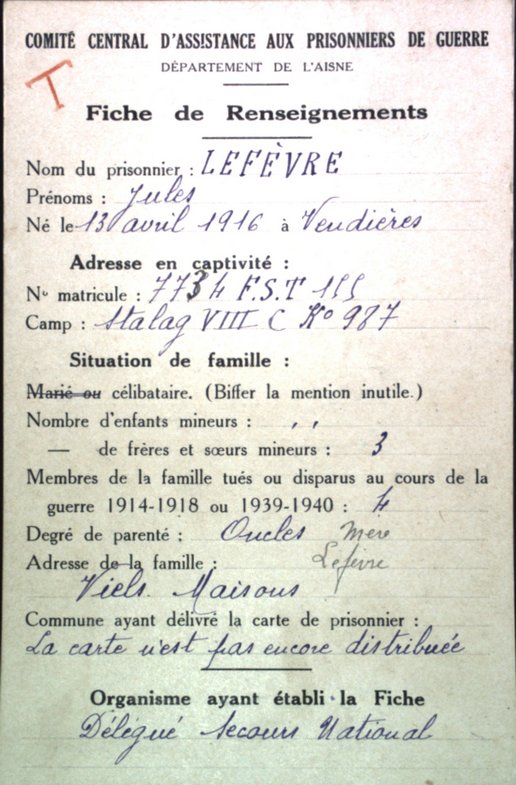 COMITÉ CENTRAL D'ASSISTANCE AUX PRISONNIERS DE GUERRE
DÉPARTEMENT DE L'AISNE
T
Fiche de Renseignements
Nom du prisonnier : LEFÈVRE
Prénoms : Jules
Né le 13 avril 1916 à Vendières
Adresse en captivité :
No matricule : 7734 F.S.T 155
Camp : Stalag VIII C Ko 987
Situation de famille :
Marié ou célibataire. (Biffer la mention inutile.)
Nombre d'enfants mineurs : ,,
— de frères et sœurs mineurs : 3
Membres de la famille tués ou disparus au cours de la
guerre 1914-1918 ou 1939-1940 : 4
Degré de parenté : Oncles mere
Adresse de la famille : Lefèvre
Viels. Maisons
Commune ayant délivré la carte de prisonnier :
La carte n'est pas encore distribuée
Organisme ayant établi la Fiche
Délégué Secours National